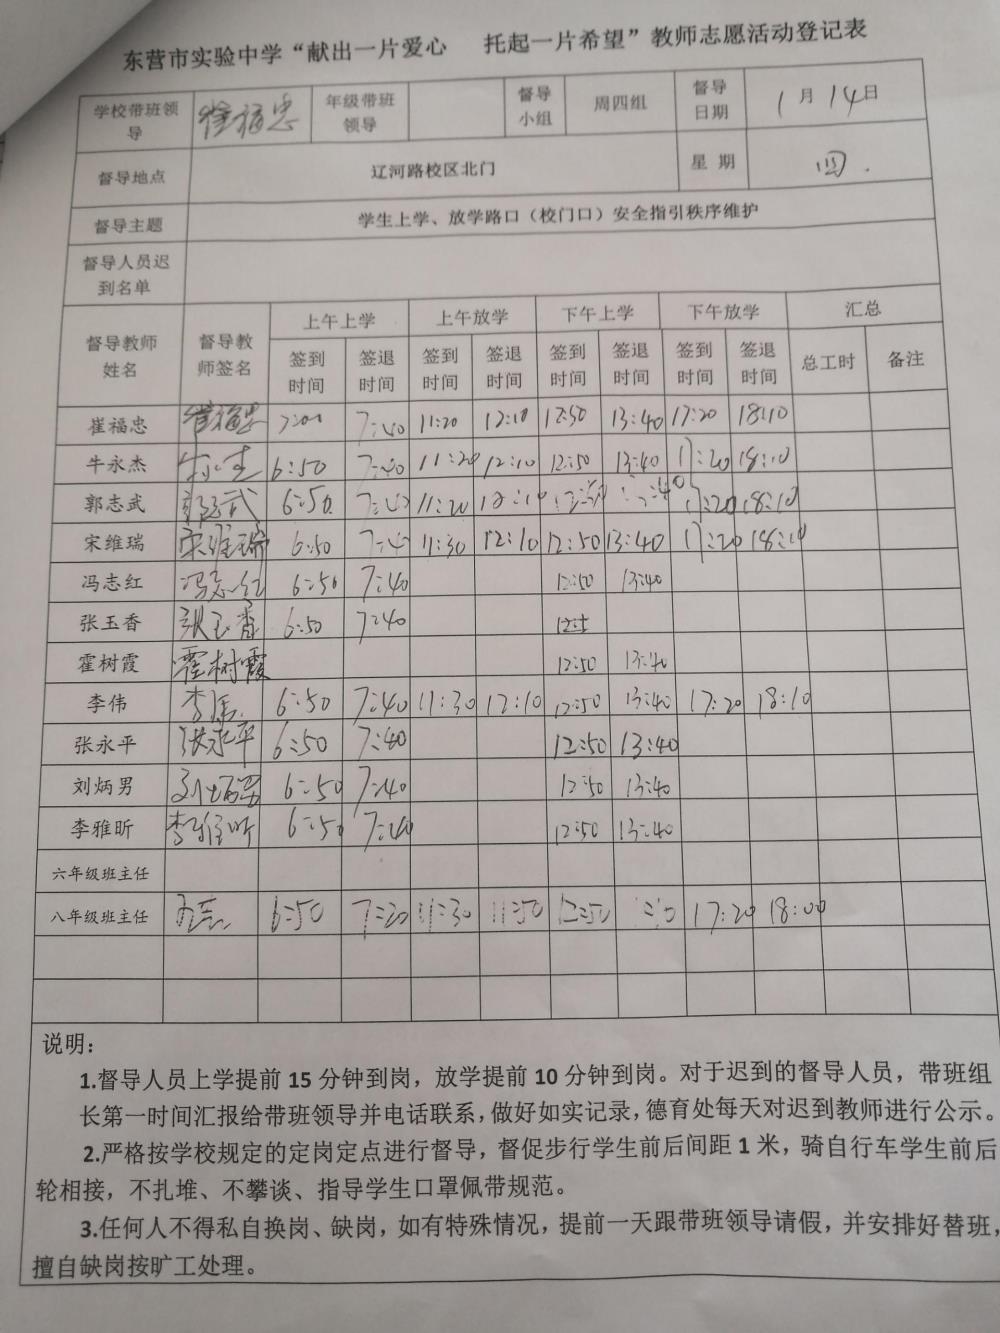 东营市实验中学“献出一片爱心 托起一片希望”教师志愿活动登记表
学校带班领导 崔福忠 年级带班领导 督导小组 周四组 督导日期 1月14日
督导地点 辽河路校区北门 星 期 四.
督导主题 学生上学、放学路口（校门口）安全指引秩序维护
督导人员迟到名单
督导教师姓名 督导教师签名 上午上学 上午放学 下午上学 下午放学 汇总
签到时间 签退时间 签到时间 签退时间 签到时间 签退时间 签到时间 签退时间 总工时 备注
崔福忠 崔福忠 7:00 7:40 11:20 12:10 12:50 13:40 17:20 18:10
牛永杰 6:50 7:40 11:20 12:10 12:50 13:40 17:20 18:10
郭志武 郭志武 6:50 7:40 11:20 12:10 17:20 18:10
宋维瑞 宋维瑞 6:50 7:4 11:30 12:10 12:50 13:40 17:20 18:10
冯志红 冯志红 6:50 7:40 12:50 13:40
张玉香 张玉香 6:50 7:40 12:5
霍树霞 霍树霞 12:50 13:40
李伟 李伟 6:50 7:40 11:30 12:10 12:50 13:40 17:20 18:10
张永平 张永平 6:50 7:40 12:50 13:40
刘炳男 刘炳男 6:50 7:40 12:50 13:40
李雅昕 李雅昕 6:50 7:40 12:50 13:40
六年级班主任
八年级班主任 6:50 7:20 11:30 11:50 12:50 17:20 18:00
说明：
1.督导人员上学提前 15 分钟到岗，放学提前 10 分钟到岗。对于迟到的督导人员，带班组
长第一时间汇报给带班领导并电话联系，做好如实记录，德育处每天对迟到教师进行公示。
2.严格按学校规定的定岗定点进行督导，督促步行学生前后间距 1 米，骑自行车学生前后
轮相接，不扎堆、不攀谈、指导学生口罩佩带规范。
3.任何人不得私自换岗、缺岗，如有特殊情况，提前一天跟带班领导请假，并安排好替班，
擅自缺岗按旷工处理。